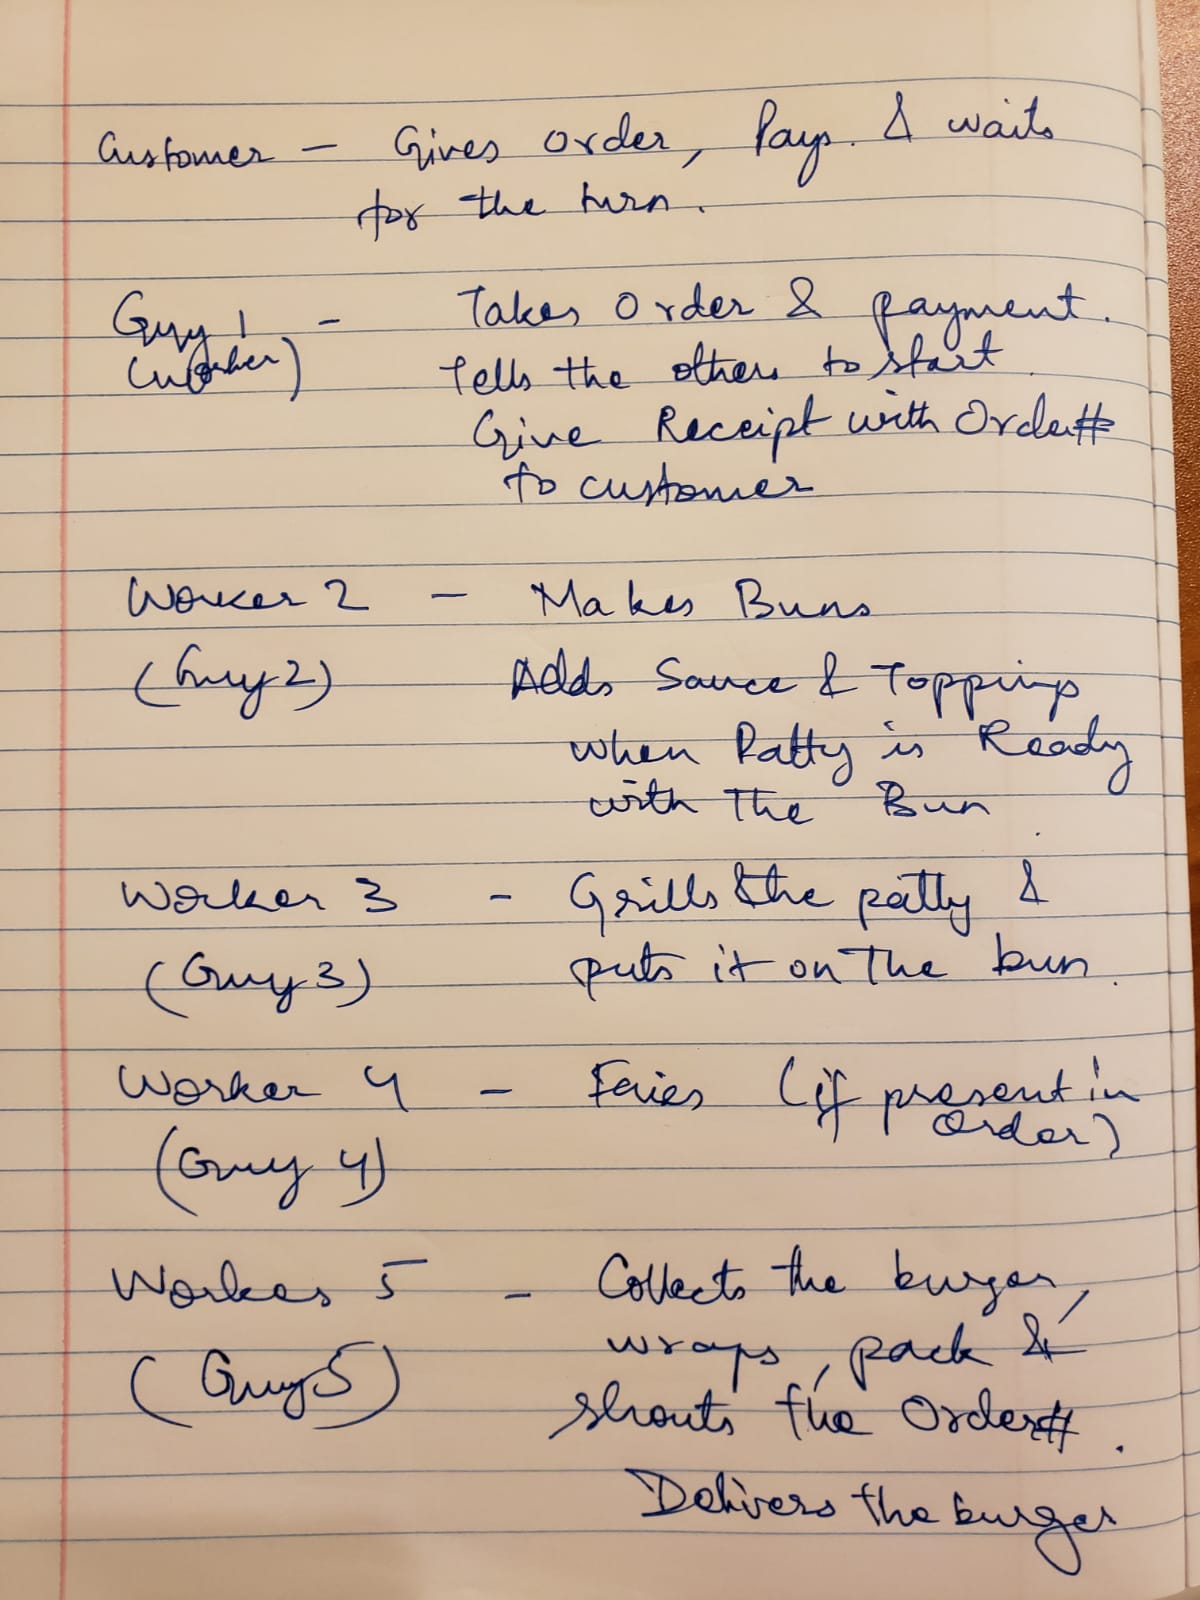 Customer - Gives order, Pays. & waits
for the turn.
Guy 1 - Takes Order & payment.
(Worker) Tells the others to start
Give Receipt with Order#
to customer
Worker 2 - Makes Buns
(Guy 2) Adds Sauce & Toppings
when Patty is Ready
with The Bun
Worker 3 - Grills the patty &
(Guy 3) puts it on The bun.
Worker 4 - Fries (if present in
order)
(Guy 4)
Worker 5 - Collects the burger,
wraps, pack &
(Guy 5)
shouts the Order#.
Delivers the burger